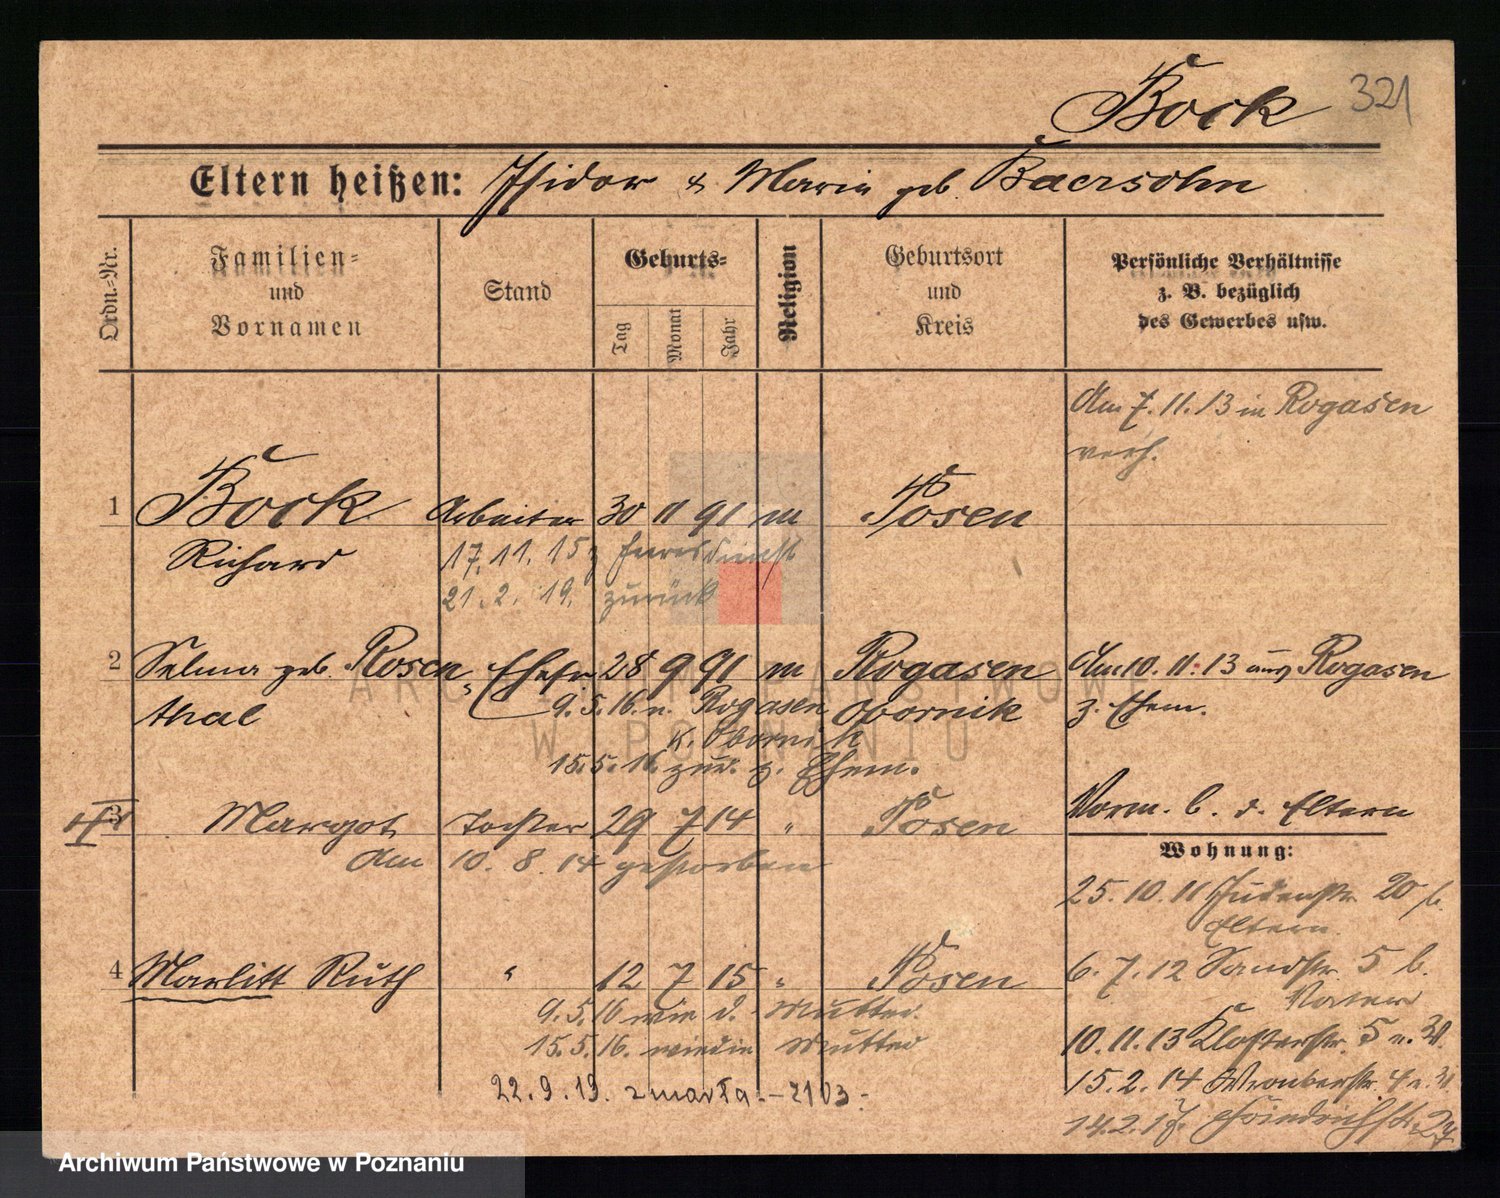 Bock 321
Eltern heißen: Isidor & Marie geb. Baersohn
Ordn.-Nr.
Familien-
und
Vornamen
Stand
Geburts-
Tag
Monat
Jahr
Religion
Geburtsort
und
Kreis
Persönliche Verhältnisse
z. B. bezüglich
des Gewerbes usw.
Am 7.11.13 in Rogasen
verh.
1 Bock Arbeiter 30 11 91 m Posen
Richard 17.11.15 z. Heeresdienst
21.2.19. zurück
2 Selma geb. Rosen Ehefr 28 9 91 m Rogasen Am 10.11.13 aus Rogasen
thal 9.5.16. n. Rogasen Obornik z. Ehem.
K. Obornik
15.5.16. zur. z. Ehem.
3 Margot Tochter 29 7 14 " Posen Vorm. b. d. Eltern
Am 10.8.14 gestorben
Wohnung:
25.10.11 Judenstr. 20 b.
Eltern
4 Marlitt Ruth " 12 7 15 " Posen 6.7.12 Sandstr. 5 b.
Vater
9.5.16 wie d. Mutter.
10.11.13 Klosterstr. 5
15.5.16. wie die Mutter
15.2.14 Wronkerstr. 4
22.9.19. zmarła - 2103.-
14.2.17. Friedrichstr. 27
ARCHIWUM PAŃSTWOWE
W POZNANIU
Archiwum Państwowe w Poznaniu